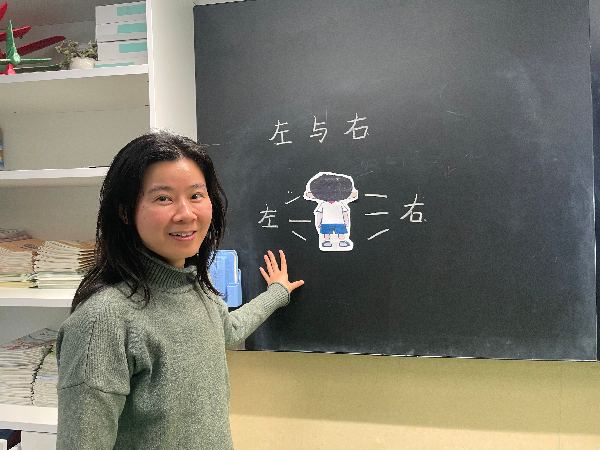 左与右
左 右